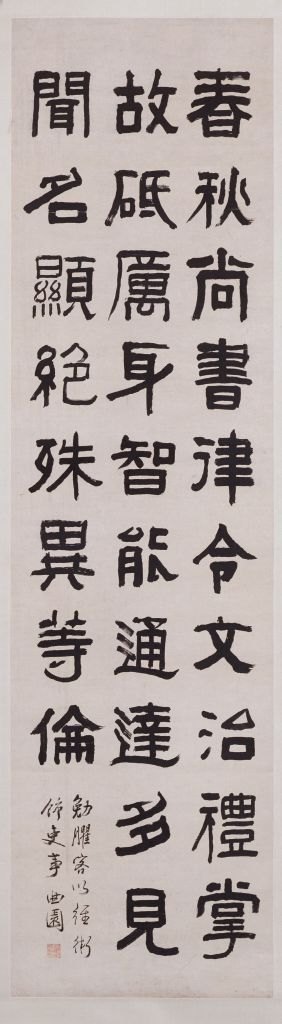 春秋尚書律令文治禮掌
故砥厲身智能通達多見
聞名顯絕殊異等倫
勉臞客以經術
飾吏事 曲園